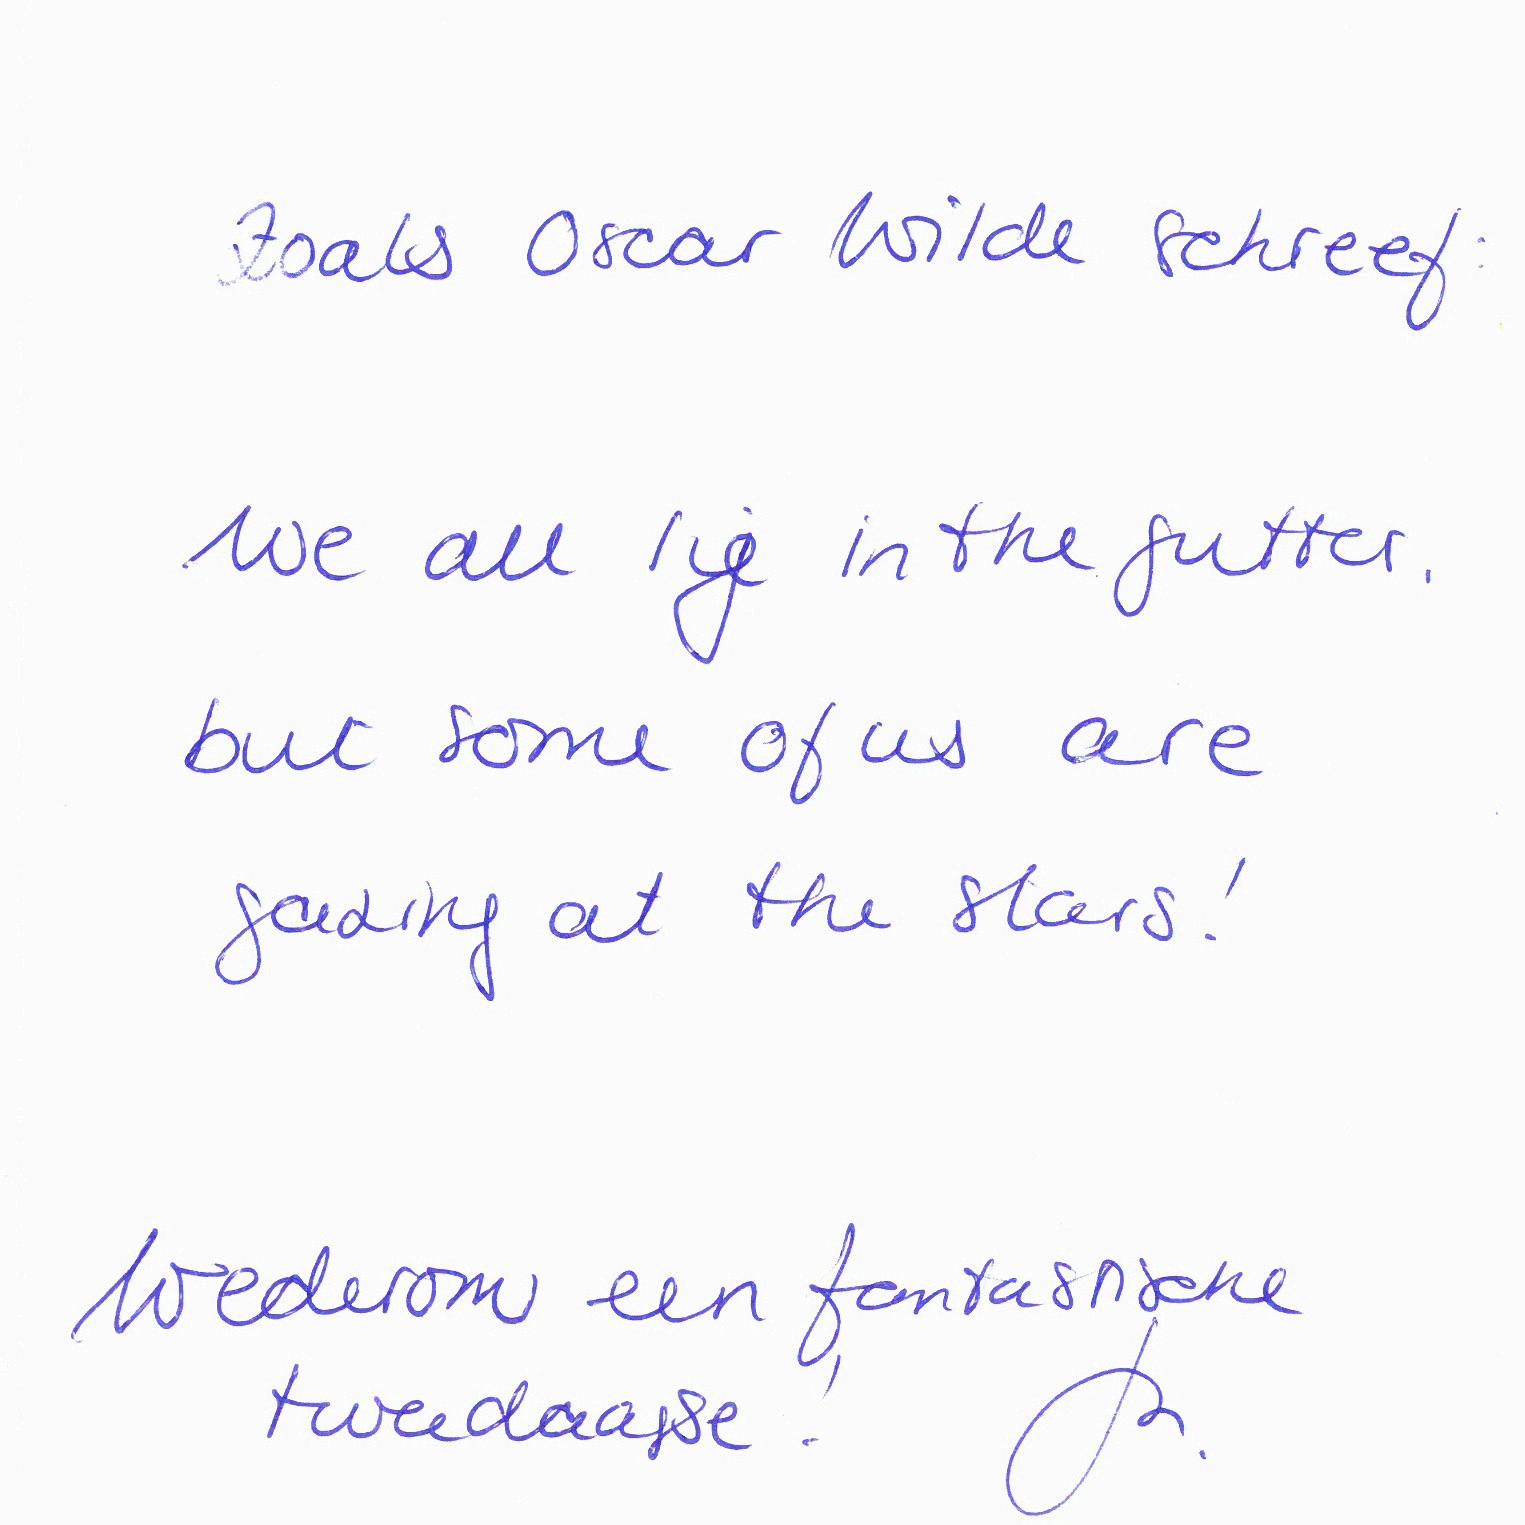 Zoals Oscar Wilde schreef:
We all lije in the gutter,
but some of us are
gazing at the stars!
Wederom een fantastische
tweedaagse!